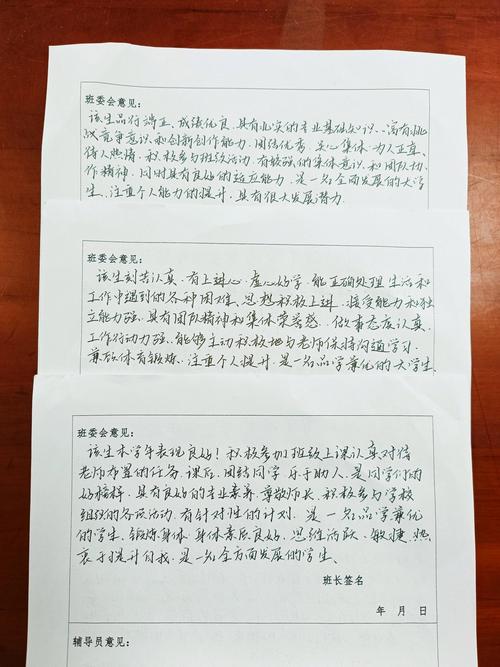 班委会意见：
该生品行端正、成绩优良，具有扎实的专业基础知识、富有挑
战竞争意识和创新创作能力，团结优秀，关心集体，为人正直、
待人热情，积极参与班级活动，有较强的集体意识和团队协
作精神，同时具有良好的适应能力，是一名全面发展的大学
生，注重个人能力的提升，具有很大发展潜力.
班委会意见：
该生刻苦认真，有上进心，虚心好学，能正确处理生活和
工作中遇到的各种困难，思想积极上进，接受能力和独
立能力强，具有团队精神和集体荣誉感，做事态度认真，
工作行动力强、能够主动积极地与老师保持沟通学习，
兼顾体育锻炼、注重个人提升，是一名品学兼优的大学生、
班委会意见：
该生本学年表现良好！积极参加班级上课认真对待
老师布置的任务，课后，团结同学，乐于助人，是同学们的
好榜样，具有良好的专业素养，尊敬师长，积极参与学校
组织的各项活动，有针对性的计划，是一名品学兼优
的学生、锻炼身体，身体素质良好，思维活跃，敏捷，热
衷于提升自我，是一名全方面发展的学生、
班长签名
年 月 日
辅导员意见：